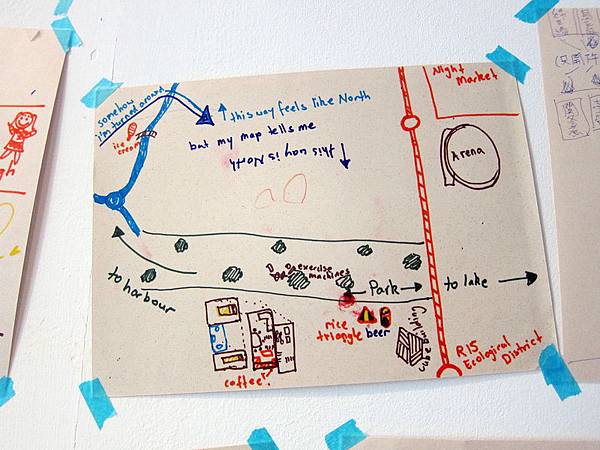 Night
Market
somehow
i'm turned around
↑ this way feels like North
but my map tells me
this way is North
ice
cream
Arena
gh
exercise
machines
to harbour
Park
to lake
rice
triangle
beer
Cube
R15
Ecological
District
coffee!